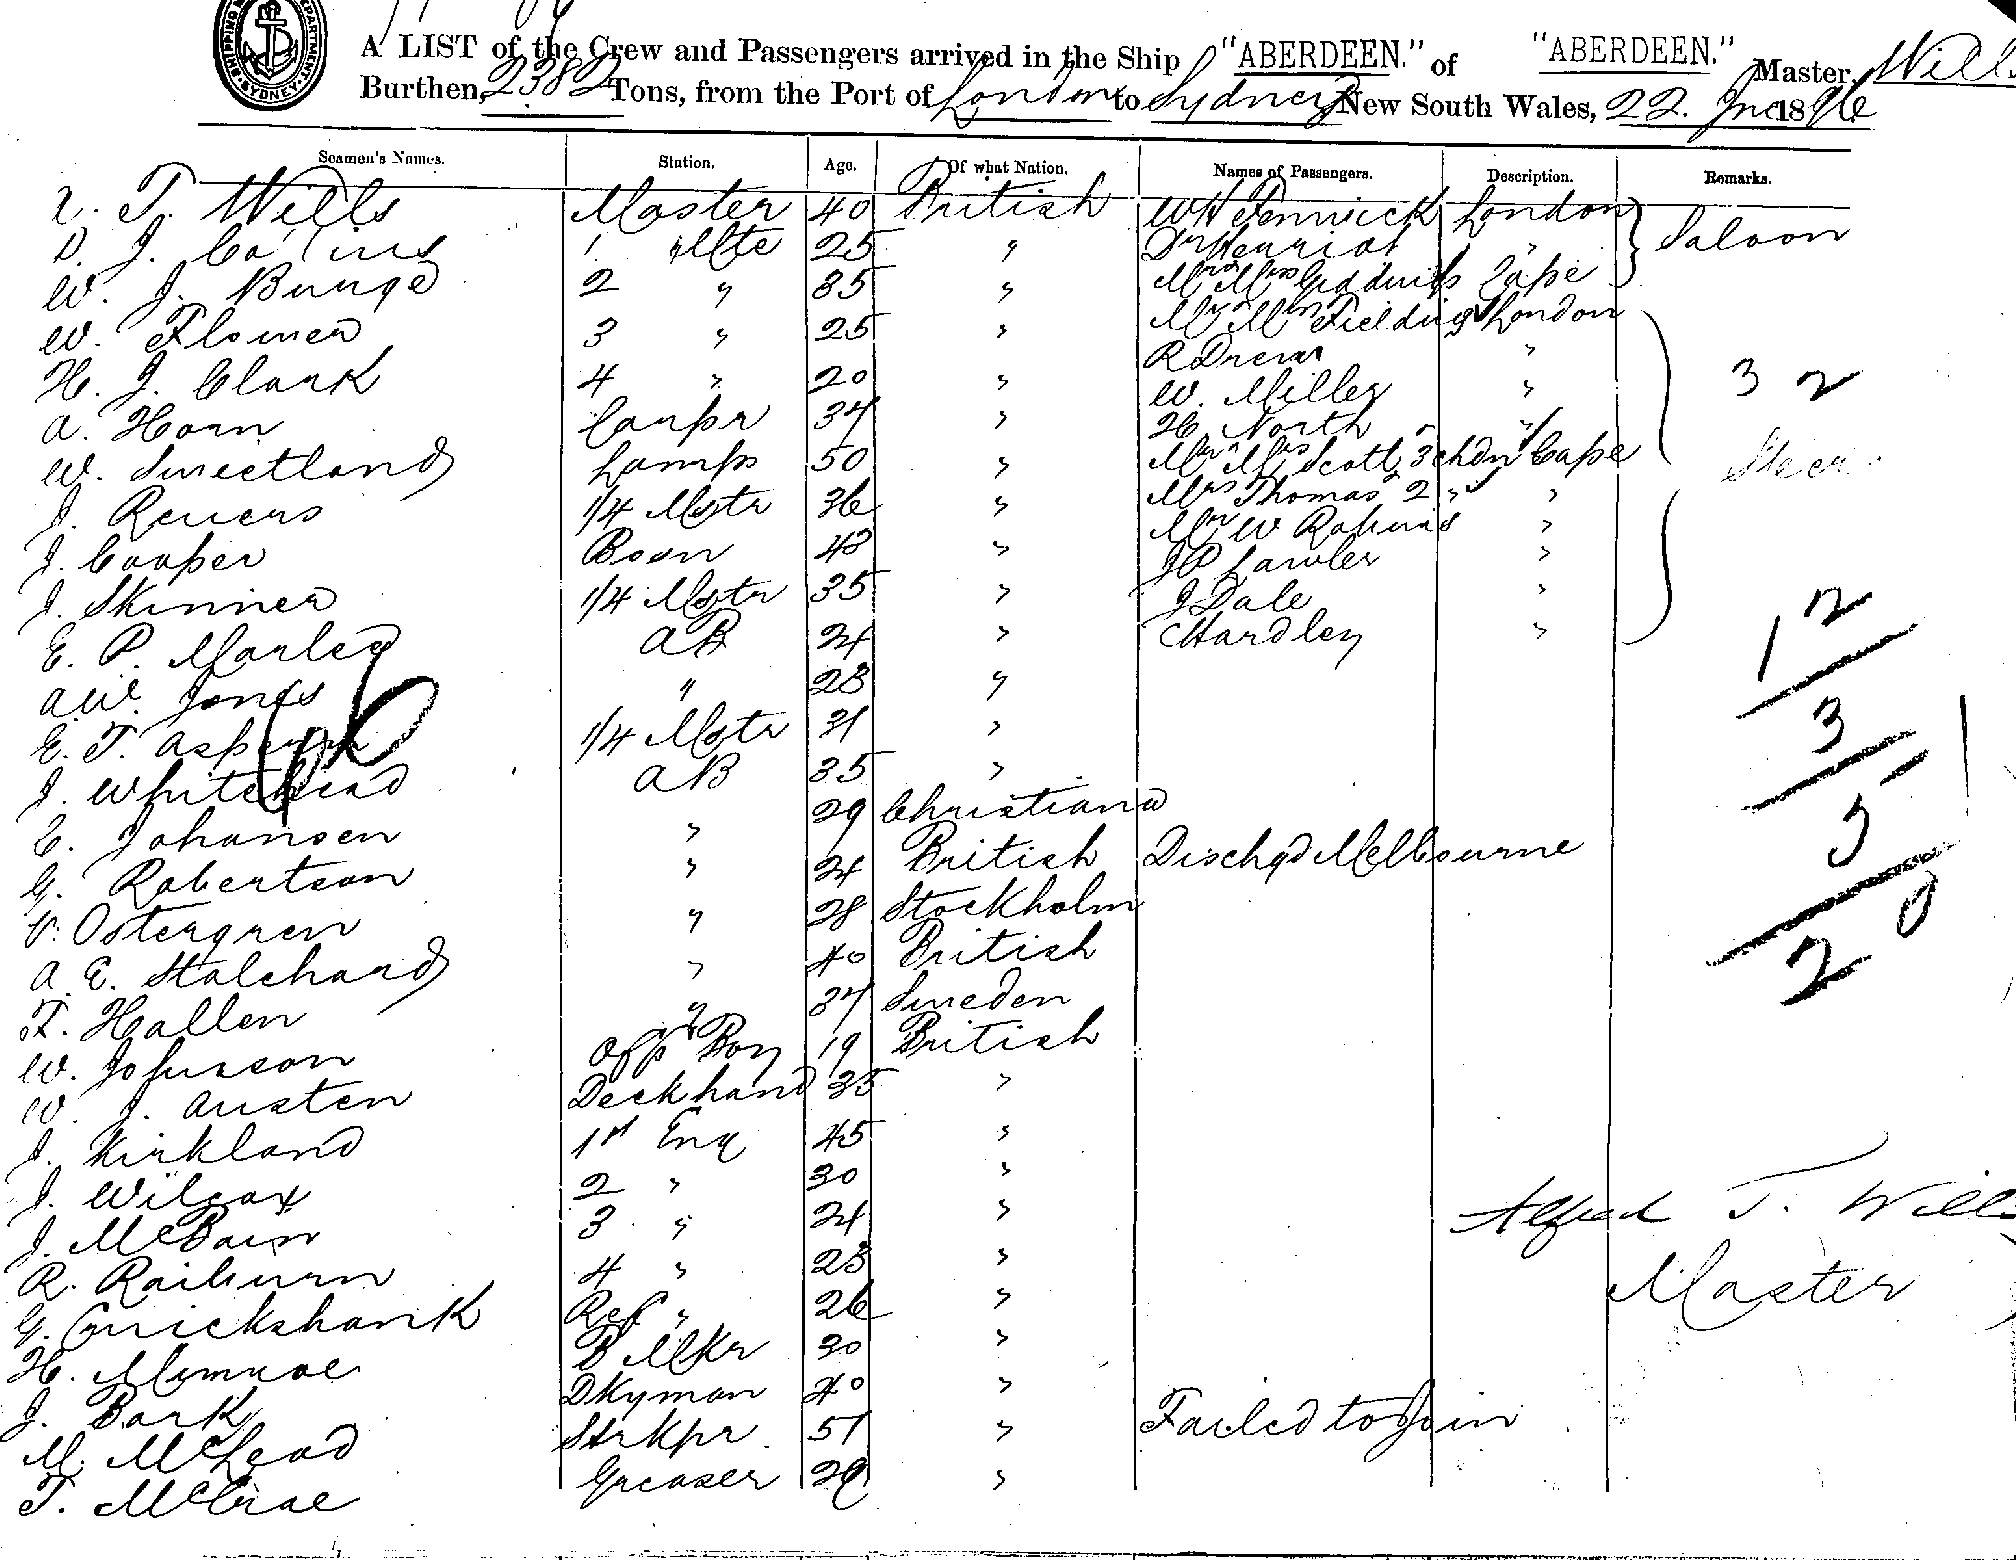 SHIPPING DEPARTMENT SYDNEY
A LIST of the Crew and Passengers arrived in the Ship "ABERDEEN." of "ABERDEEN." Master, Wills
Burthen, 2382 Tons, from the Port of London to Sydney New South Wales, 22. Jne 1896
Seamen's Names. Station. Age. Of what Nation. Names of Passengers. Description. Remarks.
T. Wills Master 40 British W H Fenwick London Saloon
D. J. Collins 1 Mte 25 " Dr Henriot "
W. J. Bunge 2 " 35 " Mr & Mrs Cape
W. Flower 3 " 25 " Mr & Mrs Fielding London
H. J. Clark 4 " 20 " R Drew " 32
A. Horn Carpr 34 " W. Miller "
W. Sweetland Lamps 50 " H. North " Steer
J. Reuers 1/4 Mstr 36 " Mr & Mrs Scott 3 chdn Cape
J. Cooper Bosn 43 " Mrs Thomas 2 " "
J. Skinner 1/4 Mstr 35 " Mr W "
E. P. Marley AB 24 " J P Lawler "
A.W. Jones " 28 " J Dale " 12
E. T. 1/4 Mstr 31 " C Hardley " 3
J. Whitehead AB 35 " 5
C. Johansen " 29 Christiana 20
G. Robertson " 24 British Dischgd Melbourne
Ostergren " 28 Stockholm
A. E. Stalchard " 40 British
F. Hallen " 37 Sweden
W. Johnson Boy 19 British
W. J. Austen Deckhand 35 "
J. Kirkland 1st Eng 45 "
J. Wilcox 2 " 30 "
J. McBain 3 " 24 " Alfred T. Wills
R. Raiburn 4 " 28 " Master
G. Cruickshank Ref " 26 "
H. Munroe B Mkr 30 "
J. Bark Dkyman 40 "
M. McLeod Strkpr 51 " Failed to Join
T. McCrae Greaser "